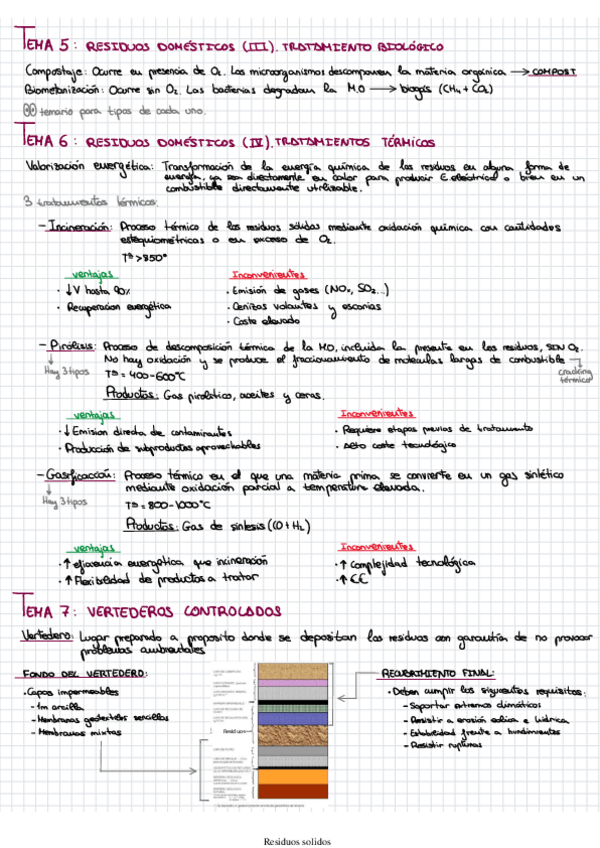 TEMA 5: RESIDUOS DOMÉSTICOS (III). TRATAMIENTO BIOLÓGICO
Compostaje: Ocurre en presencia de O₂. Los microorganismos descomponen la materia orgánica → COMPOST
Biometanización: Ocurre sin O₂. Las bacterias degradan la M.O → biogás (CH₄ + CO₂)
temario para tipos de cada uno.
TEMA 6: RESIDUOS DOMÉSTICOS (IV). TRATAMIENTOS TÉRMICOS
Valorización energética: Transformación de la energía química de los residuos en alguna forma de
energía, ya sea directamente en calor para producir E eléctrica o bien en un
combustible directamente utilizable.
3 tratamientos térmicos:
- Incineración: Proceso térmico de los residuos sólidos mediante oxidación química con cantidades
estequiométricas o en exceso de O₂.
Tª > 850°
ventajas
Inconvenientes
· ↓V hasta 90%
· Emisión de gases (NOx, SO₂...)
· Recuperacion energética
· Cenizas volantes y escorias
· Coste elevado
- Pirólisis: Proceso de descomposición térmica de la MO, incluida la presente en los residuos, SIN O₂.
Hay 3 tipos
No hay oxidación y se produce el fraccionamiento de moleculas largas de combustible
cracking
térmico
Tª = 400-600°C
Productos: Gas pirolítico, aceites y ceras.
ventajas
Inconvenientes
· ↓ Emision directa de contaminantes
· Requiere etapas previas de tratamiento
· Producción de subproductos aprovechables
· Alto coste tecnológico
- Gasificación: Proceso térmico en el que una materia prima se convierte en un gas sintético
mediante oxidación parcial a temperatura elevada.
Hay 3 tipos
Tª = 800-1000°C
Productos: Gas de síntesis (CO + H₂)
ventajas
Inconvenientes
· ↑ eficiencia energética que incineración
· ↑ Complejidad tecnológica
· ↑ Flexibilidad de productos a tratar
· ↑ €€
TEMA 7: VERTEDEROS CONTROLADOS
Vertedero: Lugar preparado a proposito donde se depositan los residuos con garantía de no provocar
problemas ambientales
FONDO DEL VERTEDERO:
· Capas impermeables
- 1m arcilla
- Membranas geotextiles sencillas
- Membranas mixtas
Residuos
RECUBRIMIENTO FINAL:
· Deben cumplir los siguientes requisitos:
- Soportar extremos climáticos
- Resistir a erosión eolica e hídrica
- Estabilidad frente a hundimientos
- Resistir rupturas
Residuos solidos